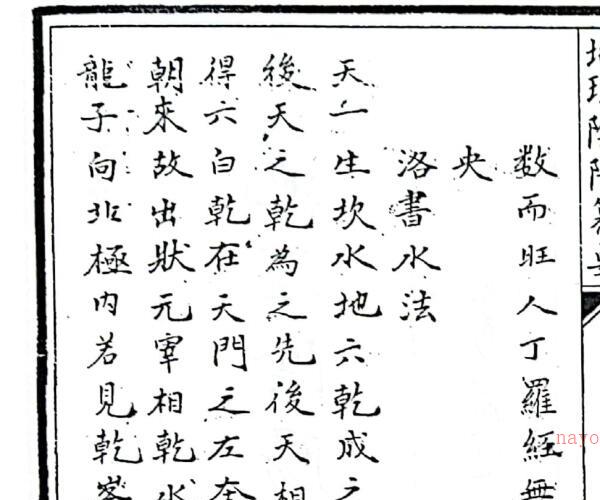 地理陰陽
数而旺人丁羅經無
央
洛書水法
天一生坎水地六乾成之
後天之乾為之先後天相
得六白乾在天門之左
朝來故出狀元宰相乾水
龍子向北極内若見乾峯
nayo